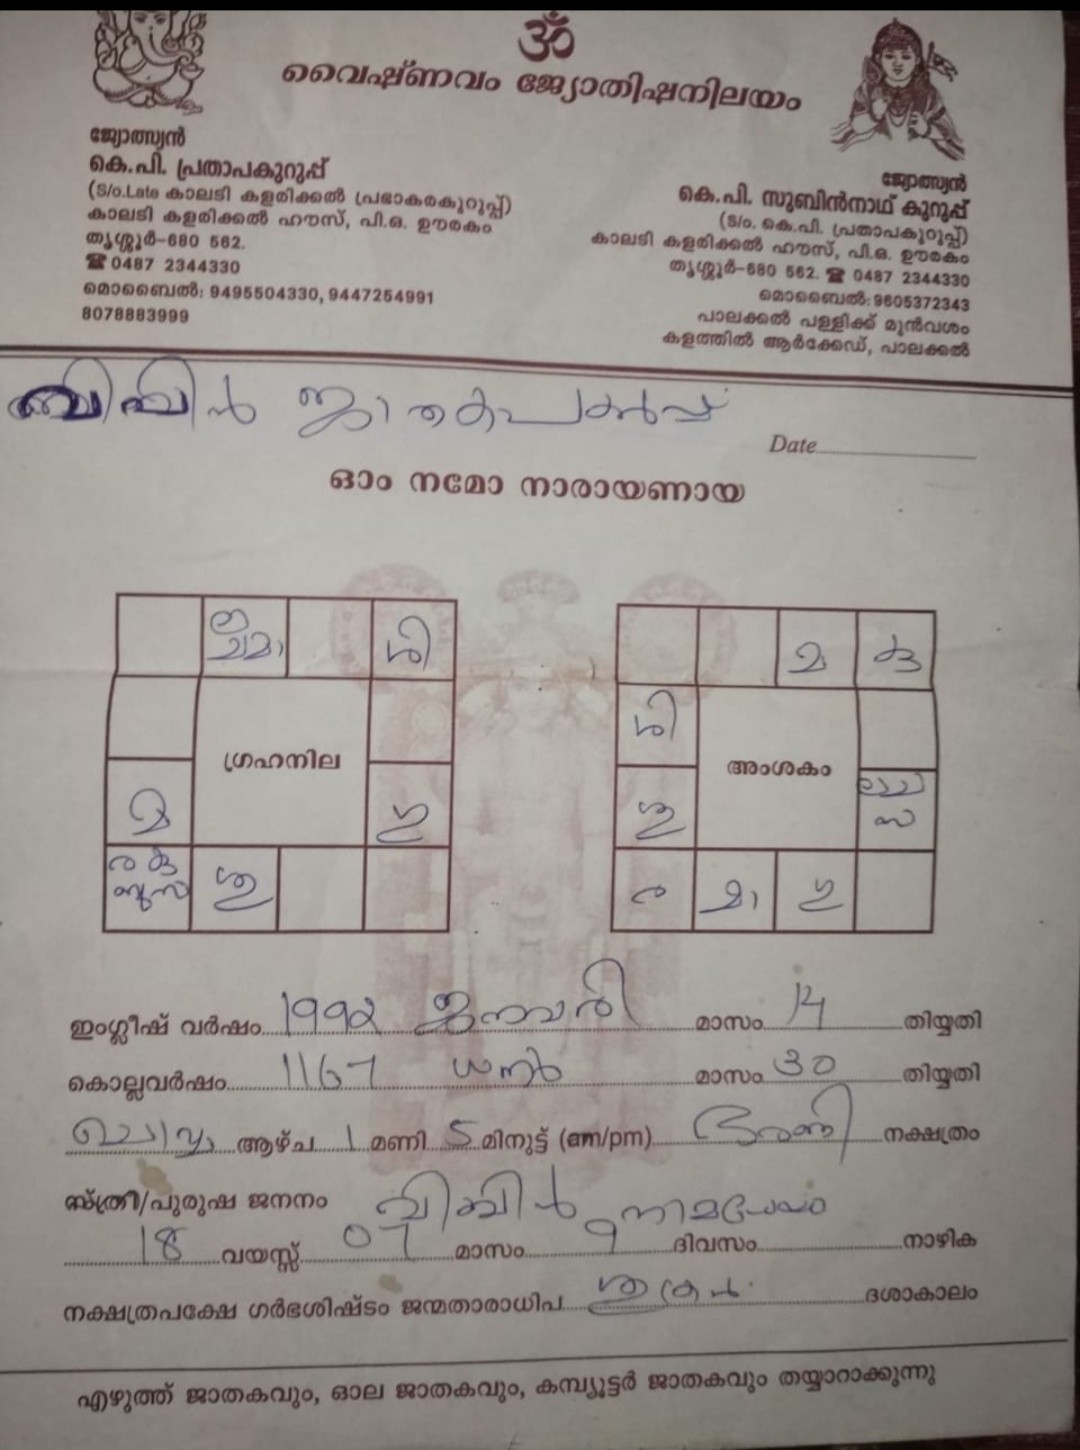 ॐ
വൈഷ്ണവം ജ്യോതിഷനിലയം
ജ്യോത്സ്യൻ
കെ.പി. പ്രതാപകുറുപ്പ്
(S/o.Late കാലടി കളരിക്കൽ പ്രഭാകരകുറുപ്പ്)
കാലടി കളരിക്കൽ ഹൗസ്, പി.ഒ. ഊരകം
തൃശ്ശൂർ-680 562.
☎ 0487 2344330
മൊബൈൽ: 9495504330, 9447254991
8078883999
ജ്യോത്സ്യൻ
കെ.പി. സുബിൻനാഥ് കുറുപ്പ്
(S/o. കെ.പി. പ്രതാപകുറുപ്പ്)
കാലടി കളരിക്കൽ ഹൗസ്, പി.ഒ. ഊരകം
തൃശ്ശൂർ-680 562. ☎ 0487 2344330
മൊബൈൽ:9605372343
പാലക്കൽ പള്ളിക്ക് മുൻവശം
കളത്തിൽ ആർക്കേഡ്, പാലക്കൽ
ബിബിൻ ജാതകപകർപ്പ്
Date
ഓം നമോ നാരായണായ
ശി
ഗ്രഹനില
മ
ഗു
ര കു
ശു
മ കു
ശി
അംശകം
ശു
സ
ര മാ ഗു
ഇംഗ്ലീഷ് വർഷം 1992 ജനുവരി മാസം 14 തിയ്യതി
കൊല്ലവർഷം 1167 ധനു മാസം 30 തിയ്യതി
ചൊവ്വ ആഴ്ച 1 മണി 5 മിനുട്ട് (am/pm) ഭരണി നക്ഷത്രം
സ്ത്രീ/പുരുഷ ജനനം ബിബിൻ നാമധേയം
18 വയസ്സ് 07 മാസം 9 ദിവസം നാഴിക
നക്ഷത്രപക്ഷേ ഗർഭശിഷ്ടം ജന്മതാരാധിപ ശുക്രൻ ദശാകാലം
എഴുത്ത് ജാതകവും, ഓല ജാതകവും, കമ്പ്യൂട്ടർ ജാതകവും തയ്യാറാക്കുന്നു